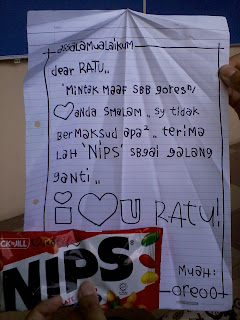 assalamualaikum
dear RATU,,
'Mintak maaf SBB goresn/
♡anda smalam,, sy tidak
BerMaksud apa²,, terima
lah 'NiPS' sbgai galang
ganti,,
i ♡ U RATU!
NIPS
Muah:
oreoo+